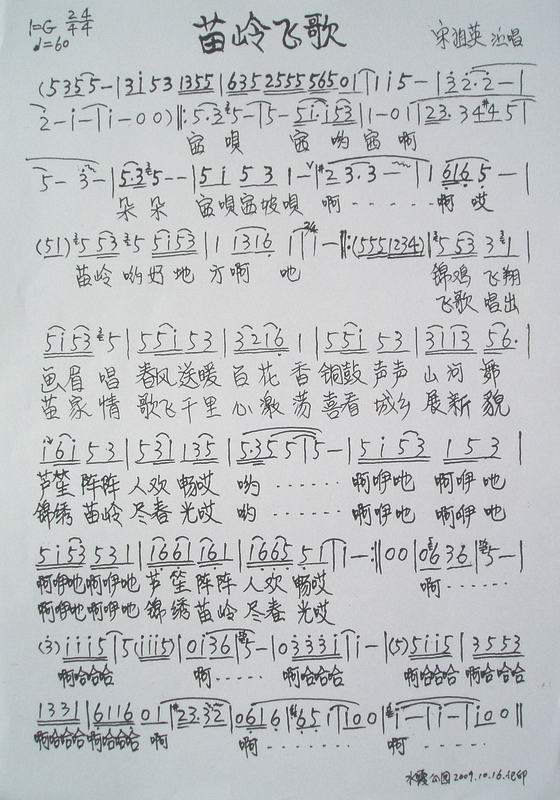 1=G 2/4 4/4
♩=60
苗岭飞歌
宋祖英 演唱
(5355-|3i53 1355|6352555 5650|1 1i5-|32·2-|
2-i-|i-00)‖:5·35-|5-5i·i53|1-01|23·3445|
5-3-|5·35--|5i531-|23·3-|1 6165-|
朵朵 啊-----啊 哎
(51)5535 5i53|1 1316|1 1-‖:(5551234)|5 5331|
苗岭 哟好地方啊 吔 锦鸡 飞翔
飞歌 唱出
5i535|55i53|32161|55i53|3113 56·|
画眉 唱 春风送暖 百花香 铜鼓声声 山河舞
苗家情 歌飞千里 心激荡 喜看城乡 展新貌
i6i53|531135|5·3555-|5i53 153|
芦笙阵阵 人欢畅哎 哟······啊咿吔 啊咿吔
锦绣苗岭 尽春光哎 哟······啊咿吔 啊咿吔
5i53531|1661161|166551|1-:‖00|0636|5-|
啊咿吔啊咿吔 芦笙阵阵 人欢 畅哎 啊······
啊咿吔啊咿吔 锦绣苗岭 尽春 光哎
(3)iii5|5(iii5)|0i36|5-|0333i|i-|(5)5ii5|3553|
啊哈哈哈 啊····· 啊哈哈哈 啊哈哈哈 啊哈哈哈
1331|611601|23·32|0616|651|100|i-|i-|i00‖
啊哈哈哈 啊哈哈哈 啊 啊······· 啊·······
公园2009.10.16.